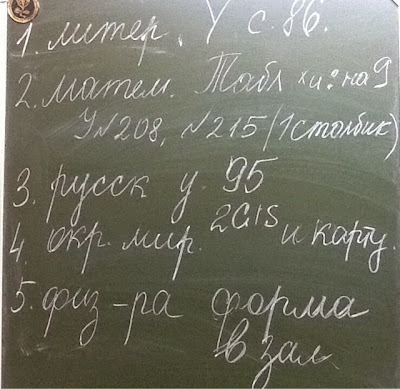 1. литер. У с. 86.
2. матем. Табл х и : на 9
У N 208, N 215 (1 столбик)
3. русск у. 95
4. окр. мир. 2GIS и карту.
5. физ-ра форма
в зал